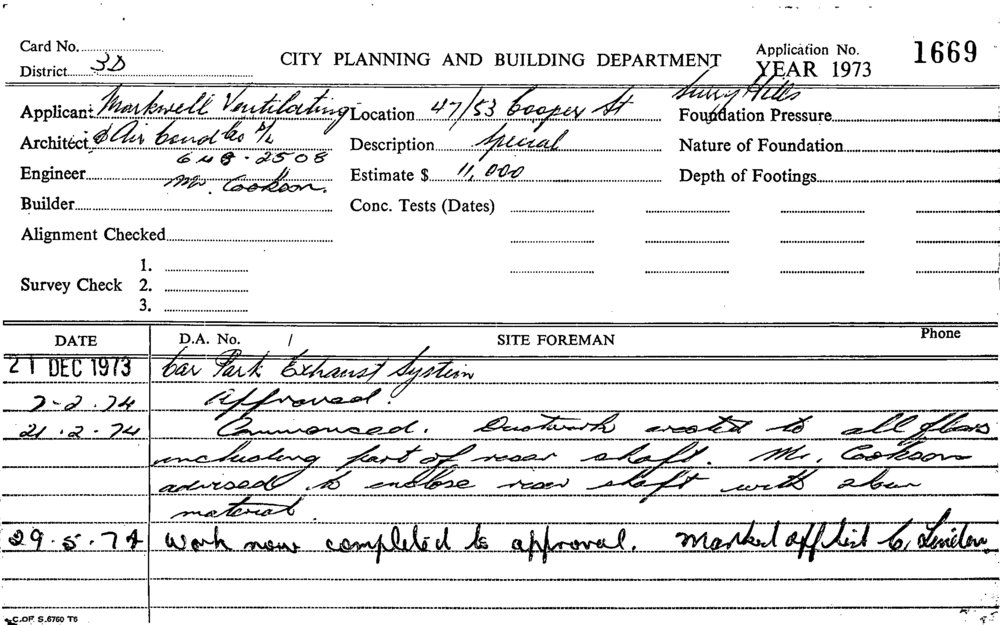 Card No.
District 3D
CITY PLANNING AND BUILDING DEPARTMENT
Application No. 1669
YEAR 1973
Applicant Markwell Ventilating
Location 47/53 Cooper St Surry Hills
Foundation Pressure
Architect & Air Cond Co P/L
Description Special
Nature of Foundation
648-2508
Engineer Mr. Cookson.
Estimate $ 11,000
Depth of Footings
Builder
Conc. Tests (Dates)
Alignment Checked
1.
Survey Check 2.
3.
DATE D.A. No. / SITE FOREMAN Phone
21 DEC 1973 Car Park Exhaust System
7-2.74 Approved.
21.2.74 Commenced. Ductwork erected to all floors
including part of riser shaft. Mr. Cookson
advised to enclose riser shaft with
material.
29.5.74 Work now completed to approval. Marked off list C. Linden.
C.OF S.6760 T6